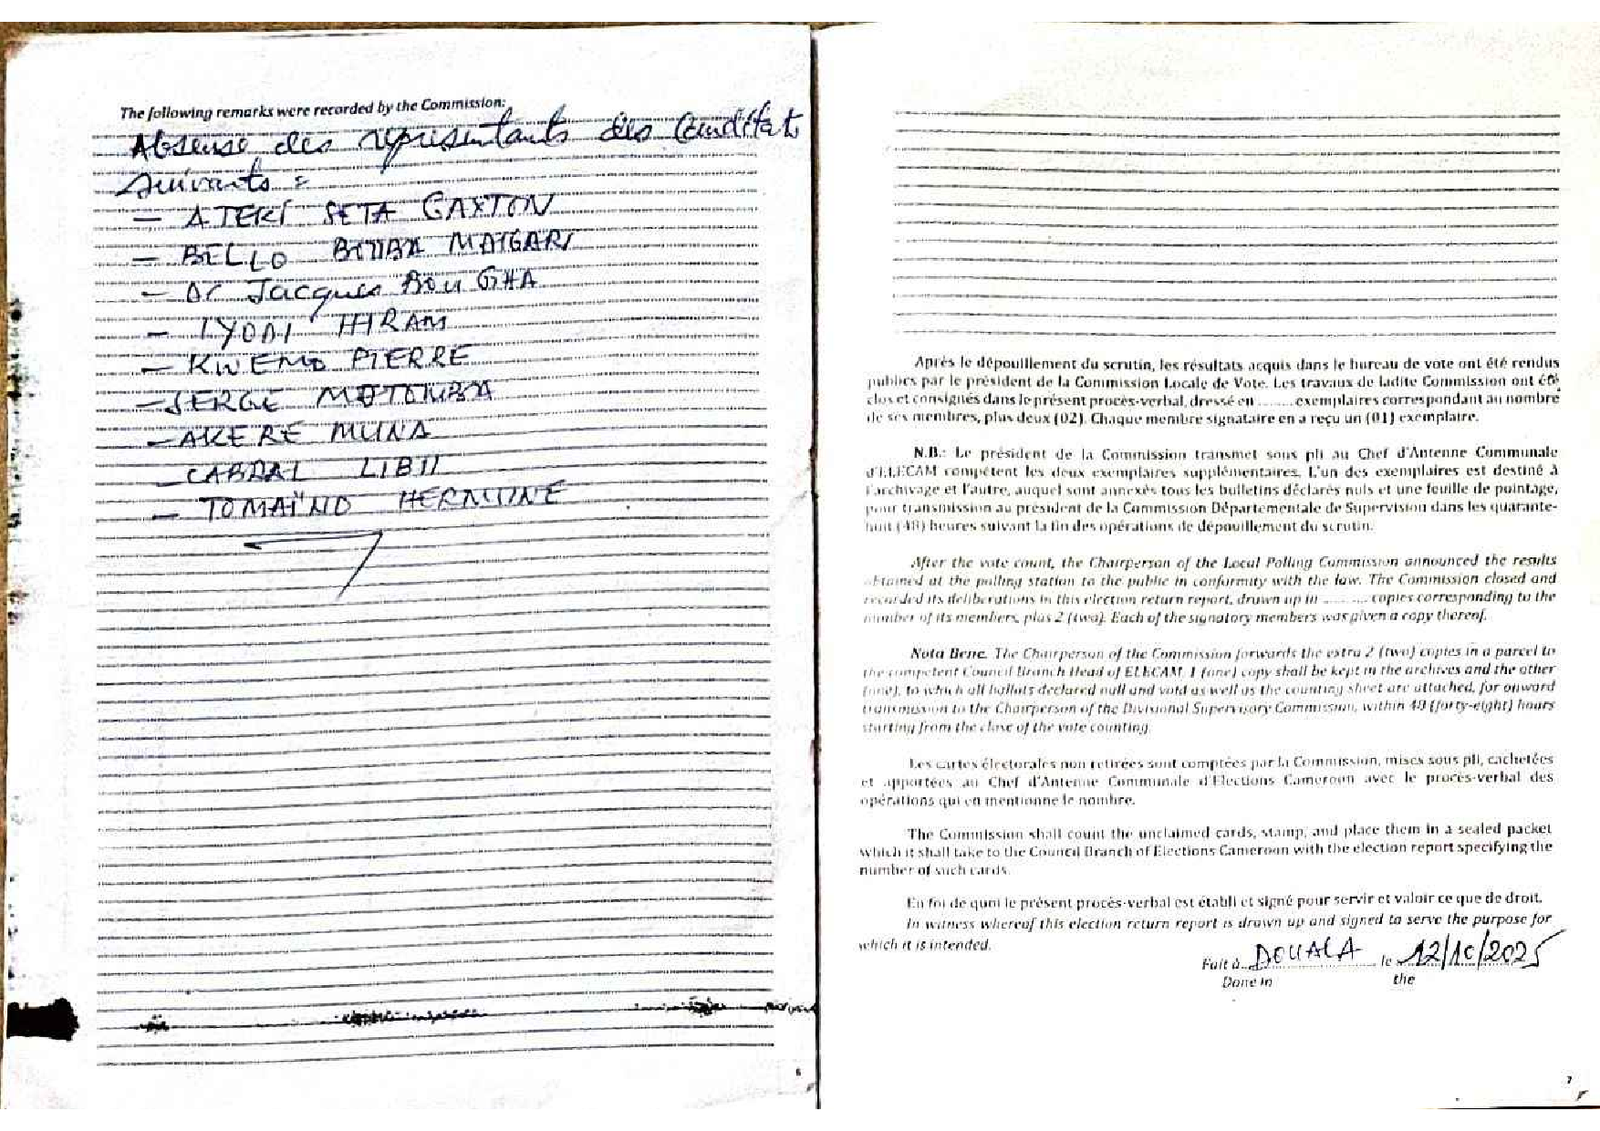 The following remarks were recorded by the Commission:
Absense des représentants des Candidats
suivants :
- ATEKI SETA CAXTON
- BELLO BOUBA MAIGARI
- Dr Jacques BOUGHA
- IYODI HIRAM
- KWEMO PIERRE
- SERGE MATOMBA
- AKERE MUNA
- CABRAL LIBII
- TOMAÏNO HERMINE
6
Après le dépouillement du scrutin, les résultats acquis dans le bureau de vote ont été rendus
publics par le président de la Commission Locale de Vote. Les travaux de ladite Commission ont été
clos et consignés dans le présent procès-verbal, dressé en ......... exemplaires correspondant au nombre
de ses membres, plus deux (02). Chaque membre signataire en a reçu un (01) exemplaire.
N.B.: Le président de la Commission transmet sous pli au Chef d'Antenne Communale
d'ELECAM compétent les deux exemplaires supplémentaires. L'un des exemplaires est destiné à
l'archivage et l'autre, auquel sont annexés tous les bulletins déclarés nuls et une feuille de pointage,
pour transmission au président de la Commission Départementale de Supervision dans les quarante-
huit (48) heures suivant la fin des opérations de dépouillement du scrutin.
After the vote count, the Chairperson of the Local Polling Commission announced the results
obtained at the polling station to the public in conformity with the law. The Commission closed and
recorded its deliberations in this election return report, drawn up in ......... copies corresponding to the
number of its members, plus 2 (two). Each of the signatory members was given a copy thereof.
Nota Bene. The Chairperson of the Commission forwards the extra 2 (two) copies in a parcel to
the competent Council Branch Head of ELECAM. 1 (one) copy shall be kept in the archives and the other
(one), to which all ballots declared null and void as well as the counting sheet are attached, for onward
transmission to the Chairperson of the Divisional Supervisory Commission, within 48 (forty-eight) hours
starting from the close of the vote counting.
Les cartes électorales non retirées sont comptées par la Commission, mises sous pli, cachetées
et apportées au Chef d'Antenne Communale d'Elections Cameroon avec le procès-verbal des
opérations qui en mentionne le nombre.
The Commission shall count the unclaimed cards, stamp, and place them in a sealed packet
which it shall take to the Council Branch of Elections Cameroon with the election report specifying the
number of such cards.
En foi de quoi le présent procès-verbal est établi et signé pour servir et valoir ce que de droit.
In witness whereof this election return report is drawn up and signed to serve the purpose for
which it is intended.
Fait à DOUALA le 12/10/2025
Done in the
7